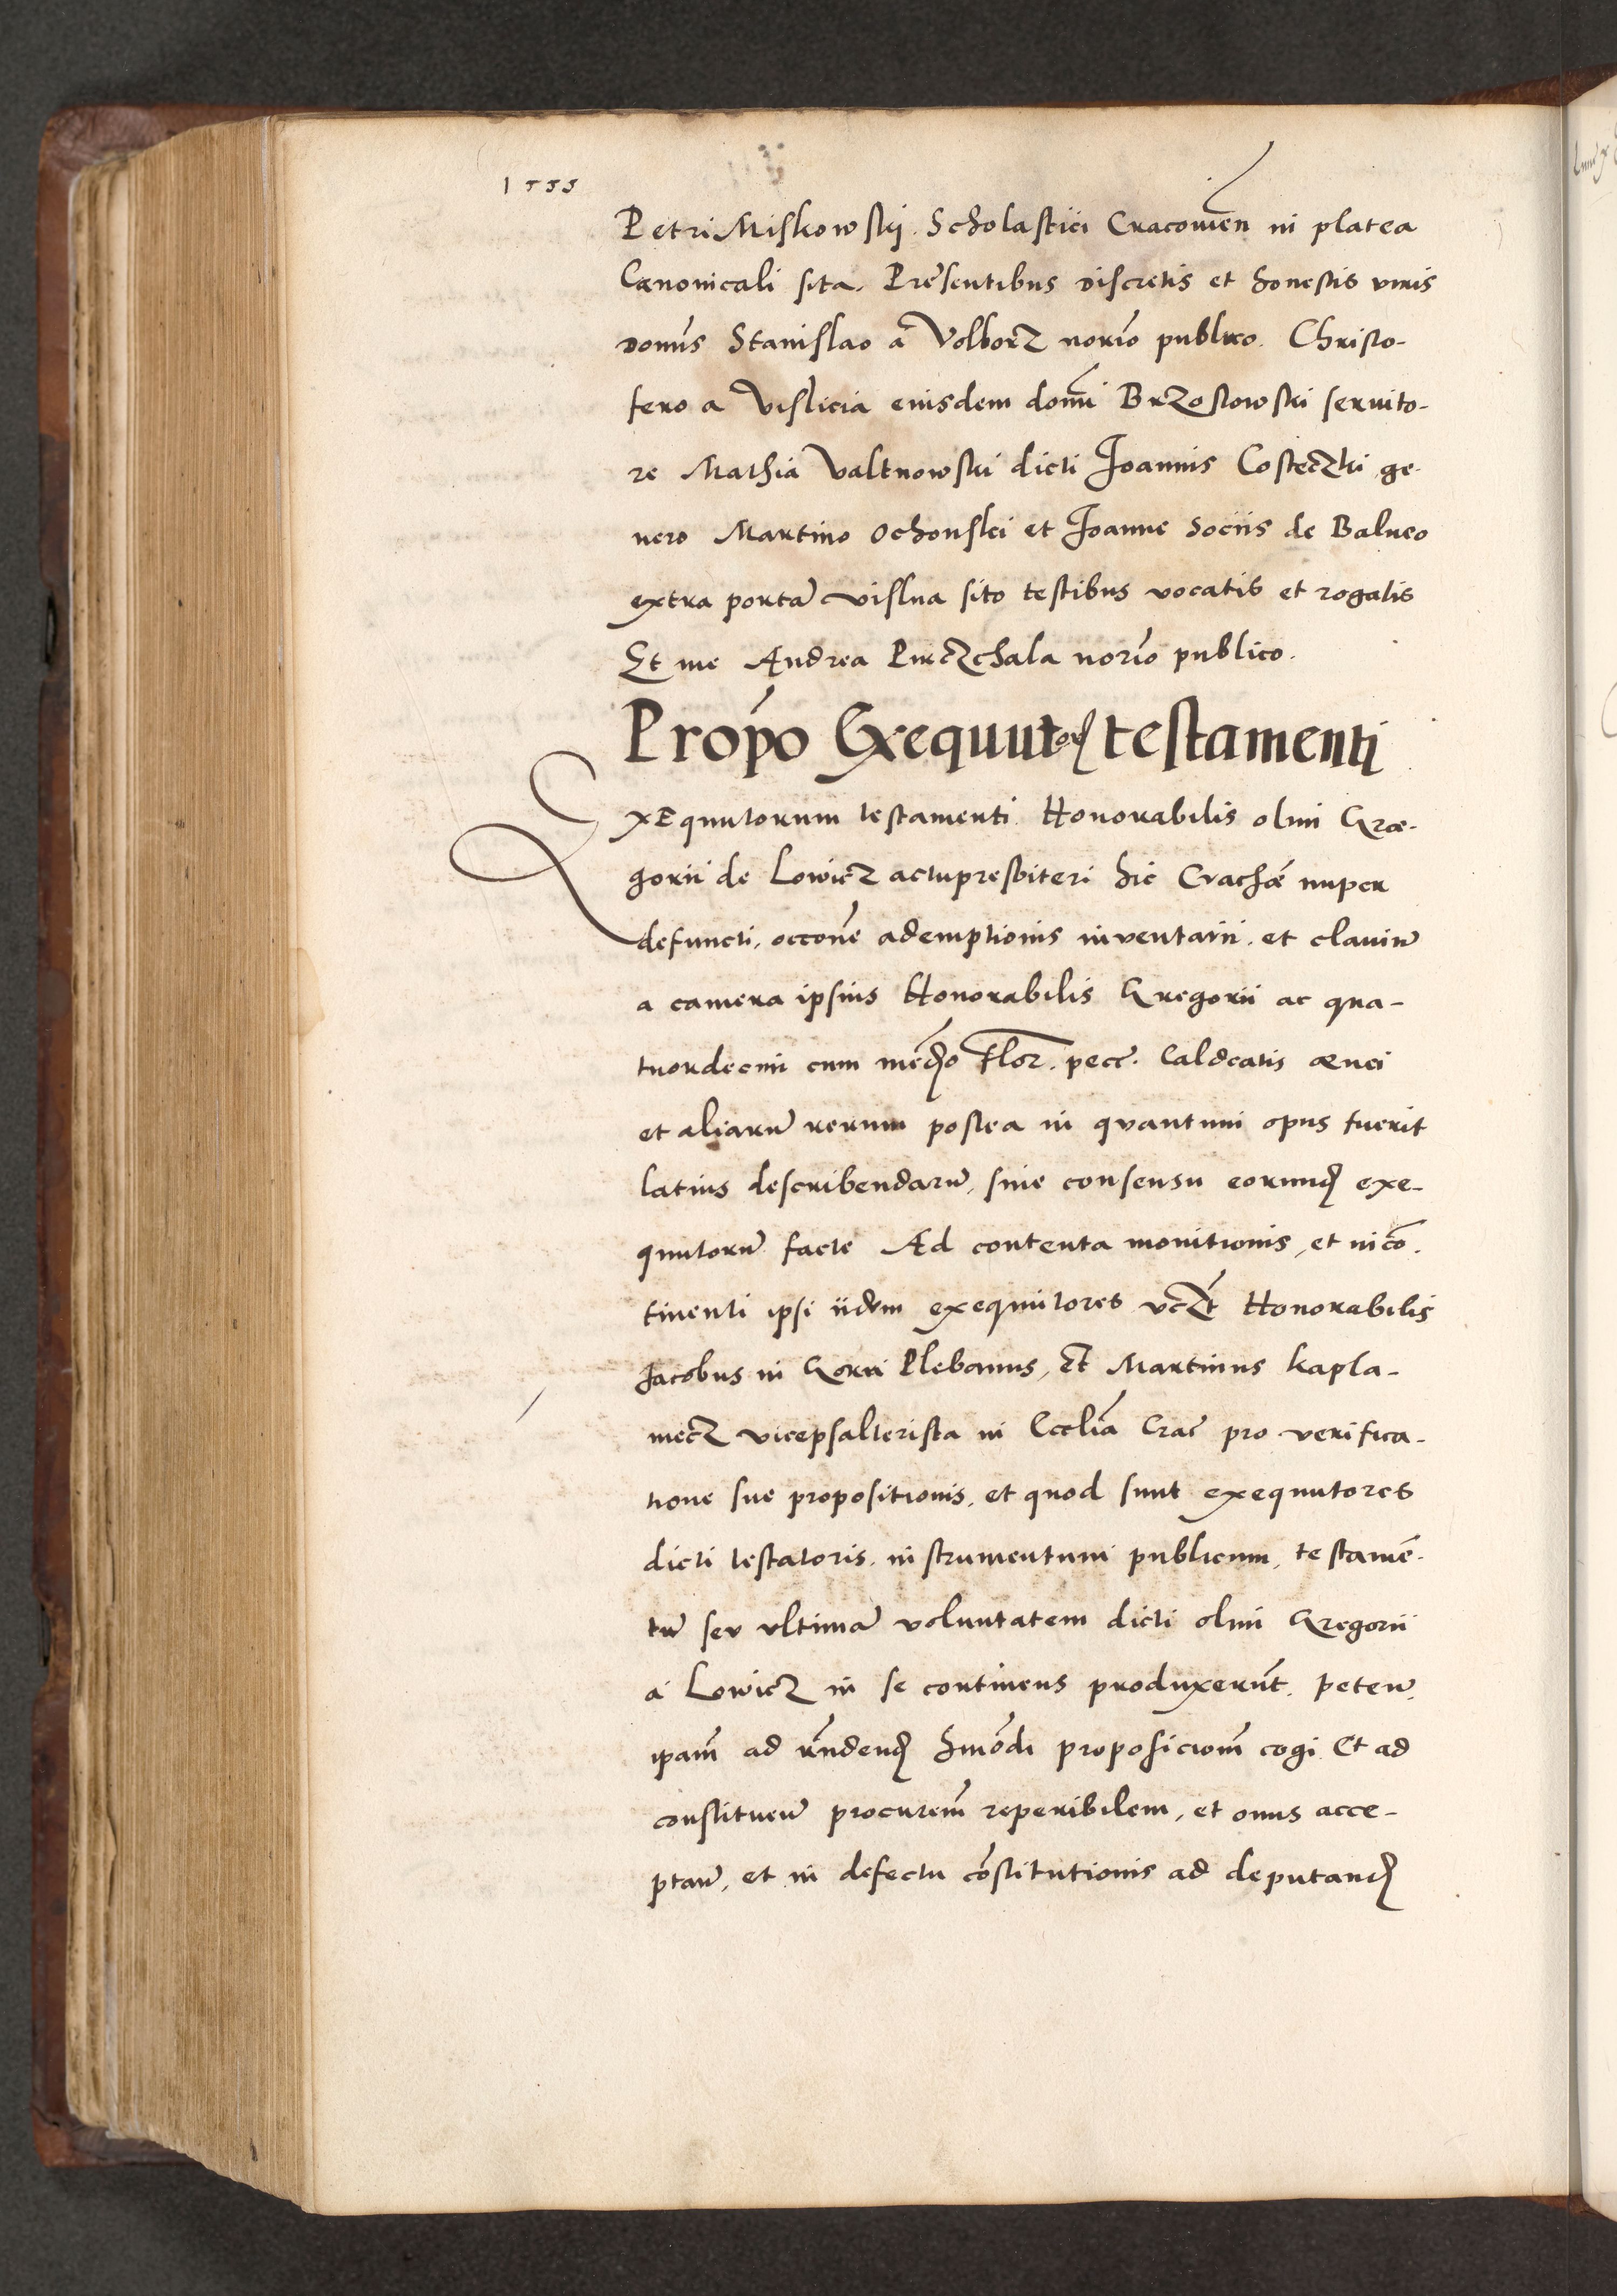 1555
Petri Miskowskj. Scholastici Cracouien̄ in platea
Canonicali sita. Pręsentibus discretis et honestis viris
domīs Stanislao a Volborz norīo publico. Christo-
fero a Vislicia eiusdem domī Brzostowski seruito-
re Mathia Valknowski dicti Joannis Costeczki ge-
nero Martino Ochonski et Joanne Sociis de Balneo
extra portā Vislna sito testibus vocatis et rogatis
Et me Andrea Pirczchala norīo publico.
Propō Exequutorꝝ testamenti
ExEquutorum testamenti Honorabilis olim Gre-
gorii de Lowicz actupresbiteri hic Crachoē nuper
defuncti, occōne ademptionis inventarii. et clauiū
a camera ipsius Honorabilis Gregorii ac qua-
tuordecim cum mēdio Flor. pecc̄. Caldeatis ænei
et aliarū rerum postea in quantum opus fuerit
latius describendarū, sine consensu eorund̄ exe-
quutorū facte Ad contenta monitionis, et in cō-
tinenti ipsi iidem exequutores vcz̄t Honorabilis
Jacobus in Gorii Plebanus, et Martinus Kapla-
niecz vicepsalterista in Ecclīa Crac̄ pro verifica-
tione sue propositionis, et quod sunt exequutores
dicti testatoris. instrumentum publicum, testamē-
tū seu vltimā voluntatem dicti olim Gregorii
a Lowicz in se continens produxerūt. peteñ.
ipam̄ ad rn̄dend̄ hmōdi proposicioni cogi Et ad
constitueñ procurem̄ reperibilem, et onus acce-
ptañ, et in defectu cōstitutionis ad deputand̄